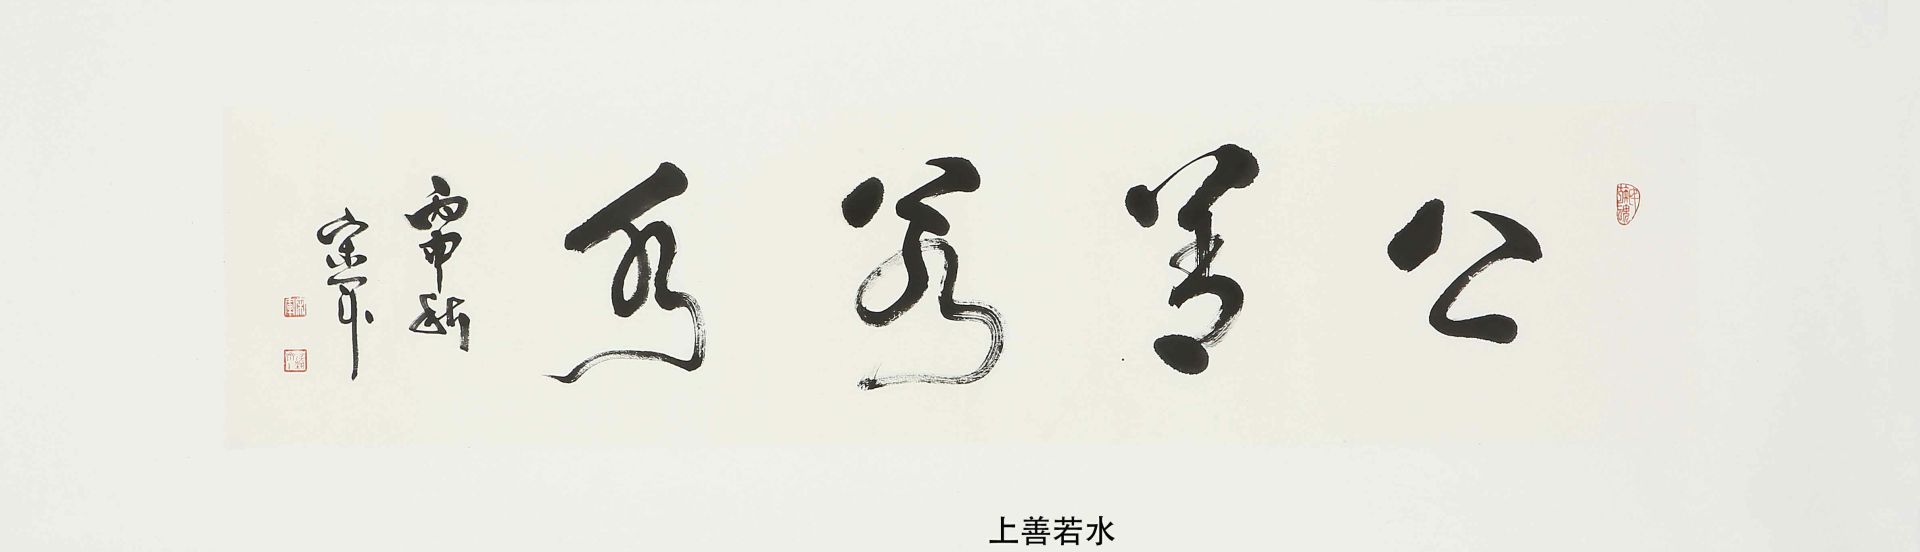 上善若水
丙申秋
上善若水